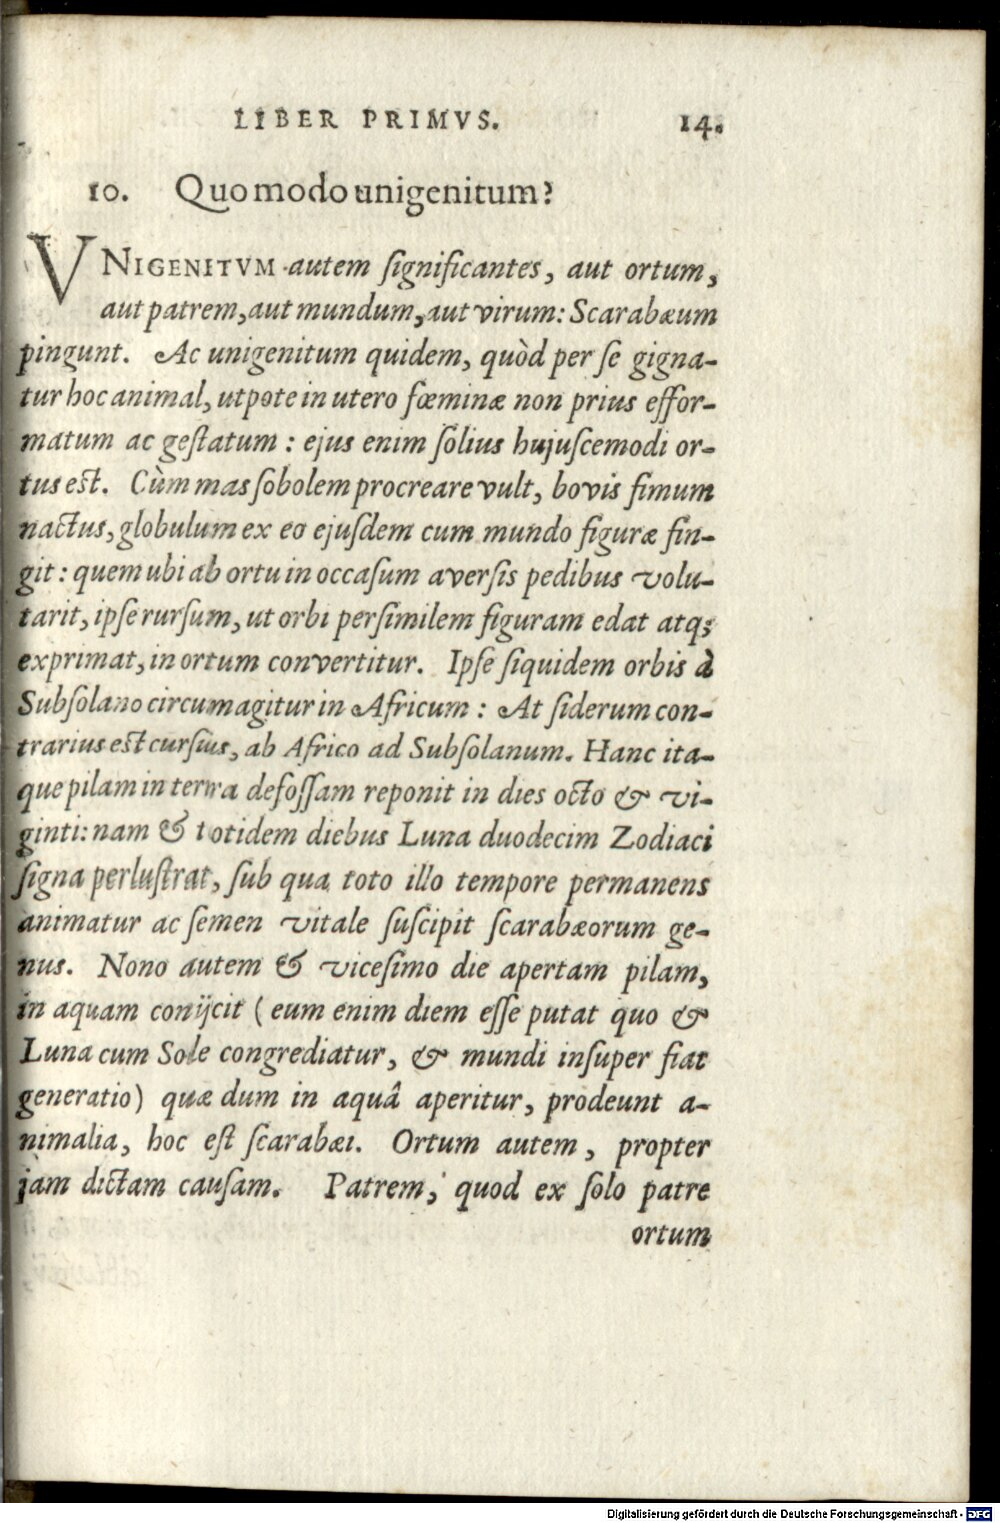 LIBER PRIMVS. 14.
10. Quomodo unigenitum?
VNIGENITVM autem ſignificantes, aut ortum,
aut patrem, aut mundum, aut virum: Scarabæum
pingunt. Ac unigenitum quidem, quòd per ſe gigna-
tur hoc animal, utpote in utero fœminæ non prius effor-
matum ac geſtatum : ejus enim ſolius hujuſcemodi or-
tus eſt. Cùm mas ſobolem procreare vult, bovis fimum
nactus, globulum ex eo ejuſdem cum mundo figuræ fin-
git : quem ubi ab ortu in occaſum averſis pedibus volu-
tarit, ipſe rurſum, ut orbi perſimilem figuram edat atq;
exprimat, in ortum convertitur. Ipſe ſiquidem orbis à
Subſolano circumagitur in Africum : At ſiderum con-
trarius eſt curſus, ab Africo ad Subſolanum. Hanc ita-
que pilam in terra defoſſam reponit in dies octo & vi-
ginti: nam & totidem diebus Luna duodecim Zodiaci
ſigna perluſtrat, ſub qua toto illo tempore permanens
animatur ac ſemen vitale ſuſcipit ſcarabæorum ge-
nus. Nono autem & viceſimo die apertam pilam,
in aquam conijcit ( eum enim diem eſſe putat quo &
Luna cum Sole congrediatur, & mundi inſuper fiat
generatio) quæ dum in aquâ aperitur, prodeunt a-
nimalia, hoc eſt ſcarabæi. Ortum autem, propter
jam dictam cauſam. Patrem, quod ex ſolo patre
ortum
Digitalisierung gefördert durch die Deutsche Forschungsgemeinschaft - DFG